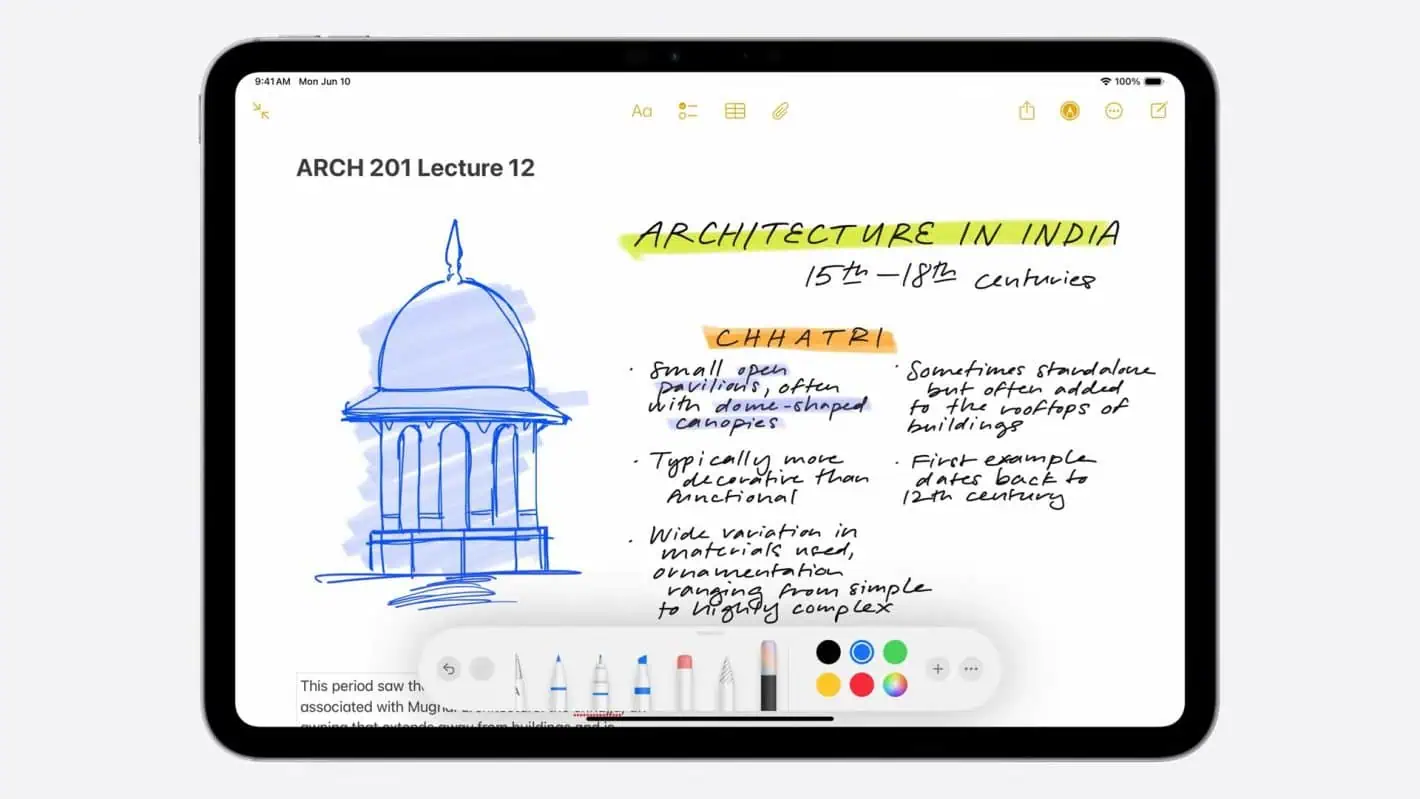 9:41 AM Mon Jun 10
100%
Aa
ARCH 201 Lecture 12
ARCHITECTURE IN INDIA
15th – 18th centuries
CHHATRI
· Small open
pavilions, often
with dome-shaped
canopies
· Typically more
decorative than
functional
· Wide variation in
materials used,
ornamentation
ranging from simple
to highly complex
· Sometimes standalone
but often added
to the rooftops of
buildings
· First example
dates back to
12th century
This period saw
associated with
awning that extends away from buildings and is